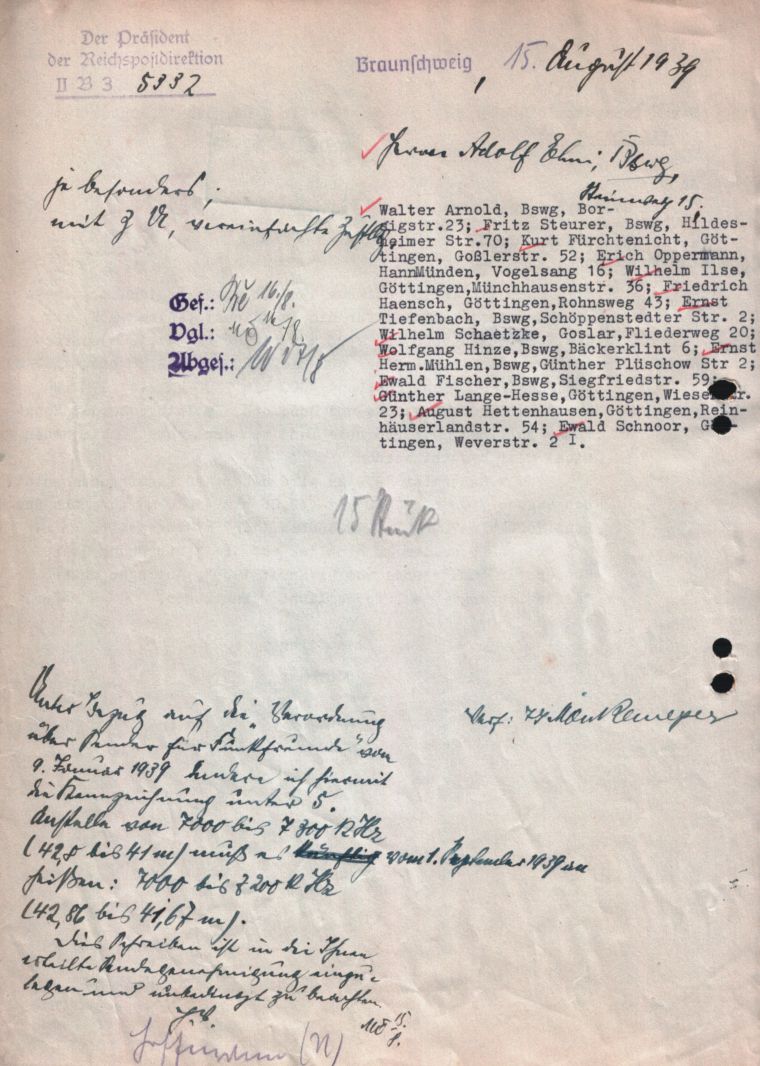 Der Präsident
der Reichspostdirektion
II B 3 5332
Braunschweig, 15. August 1939
Herrn Adolf Ehni, Bswg,
Steinweg 15,
je besonders,
mit ZU, vereinfachte Zustllg.
Walter Arnold, Bswg, Bor-
sigstr.23; Fritz Steurer, Bswg, Hildes-
heimer Str.70; Kurt Fürchtenicht, Göt-
tingen, Goßlerstr. 52; Erich Oppermann,
HannMünden, Vogelsang 16; Wilhelm Ilse,
Göttingen,Münchhausenstr. 36; Friedrich
Haensch, Göttingen,Rohnsweg 43; Ernst
Tiefenbach, Bswg,Schöppenstedter Str. 2;
Wilhelm Schaetzke, Goslar,Fliederweg 20;
Wolfgang Hinze,Bswg,Bäckerklint 6; Ernst
Herm.Mühlen,Bswg,Günther Plüschow Str 2;
Ewald Fischer,Bswg,Siegfriedstr. 59;
Günther Lange-Hesse,Göttingen,Wiesenstr.
23; August Hettenhausen,Göttingen,Rein-
häuserlandstr. 54; Ewald Schnoor, Göt-
tingen, Weverstr. 2 I.
Gef.: 16/8.
Vgl.:
Abges.: 17/8
15 Stück
Unter Bezug auf die „Verordnung
über Sender für Funkfreunde" vom
9. Januar 1939 ändere ich hiermit
die Kennzeichnung unter 5.
Anstelle von 7000 bis 7300 kHz
(42,8 bis 41 m) muß es künftig vom 1. September 1939 an
heißen: 7000 bis 7200 kHz
(42,86 bis 41,67 m).
Dies Schreiben ist in die Ihnen
erteilte Sendegenehmigung einzu-
legen und unbedingt zu beachten.
Verf:
15.
8.
(N)